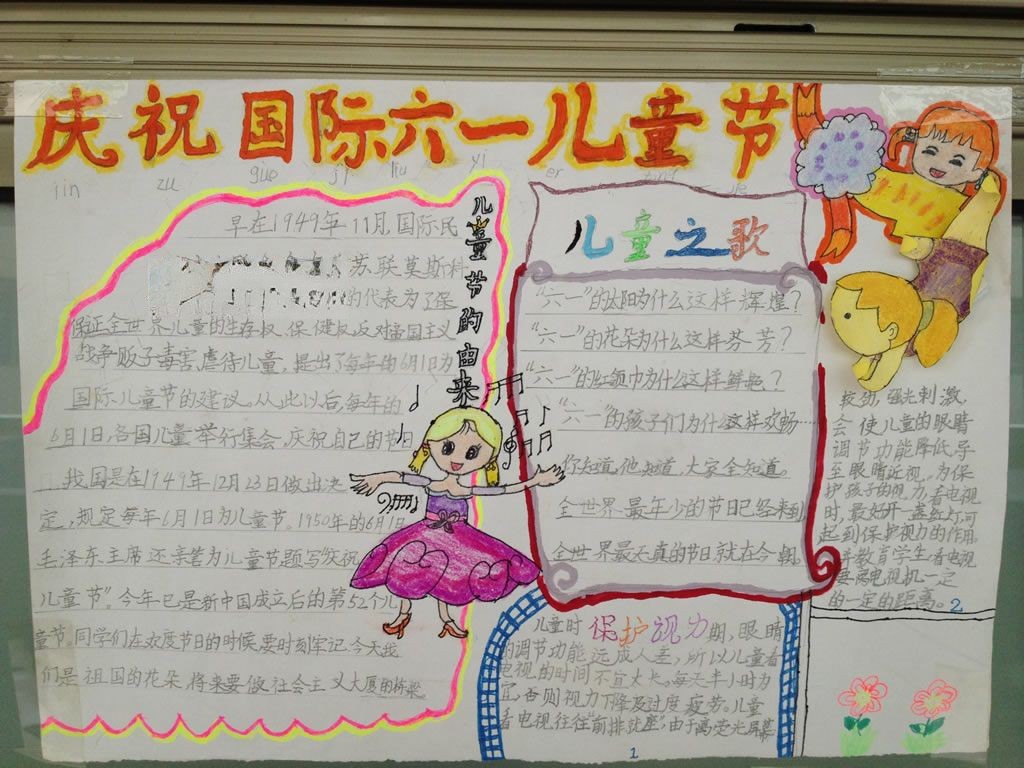 庆祝国际六一儿童节
jin zu guo ji liu yi er tong jie
儿童节的由来
早在1949年11月,国际民
苏联莫斯科
的代表为了保
保证全世界儿童的生存权、保健权,反对帝国主义
战争贩子毒害虐待儿童,提出了每年的6月1日为
国际儿童节的建议。从此以后,每年的
6月1日,各国儿童举行集会,庆祝自己的节日
我国是在1949年12月23日做出决
定,规定每年6月1日为儿童节。1950年的6月1日
毛泽东主席还亲笔为儿童节题写"庆祝
儿童节"。今年已是新中国成立后的第52个儿
童节。同学们在欢度节日的时候,要时刻牢记,今天我
们是祖国的花朵,将来要做社会主义大厦的桥梁。
儿童之歌
"六一"的太阳为什么这样辉煌?
"六一"的花朵为什么这样芬芳?
"六一"的红领巾为什么这样鲜艳?
"六一"的孩子们为什么这样欢畅……
你知道,他知道,大家全知道。
全世界最年少的节日已经来到
全世界最天真的节日就在今朝
保护视力
儿童时期,眼睛
的调节功能远成人差,所以儿童看
电视的时间不宜太长,每天半小时为
宜,否则视力下降及过度疲劳。儿童
看电视往往"前排就座",由于离荧光屏幕
1
较劲,强光刺激,
会使儿童的眼睛
调节功能降低,导
至眼睛近视。为保
护孩子的视力,看电视
时,最好开一盏红灯,可
起到保护视力的作用,
并教育学生看电视
要离电视机一定
的一定的距离。2